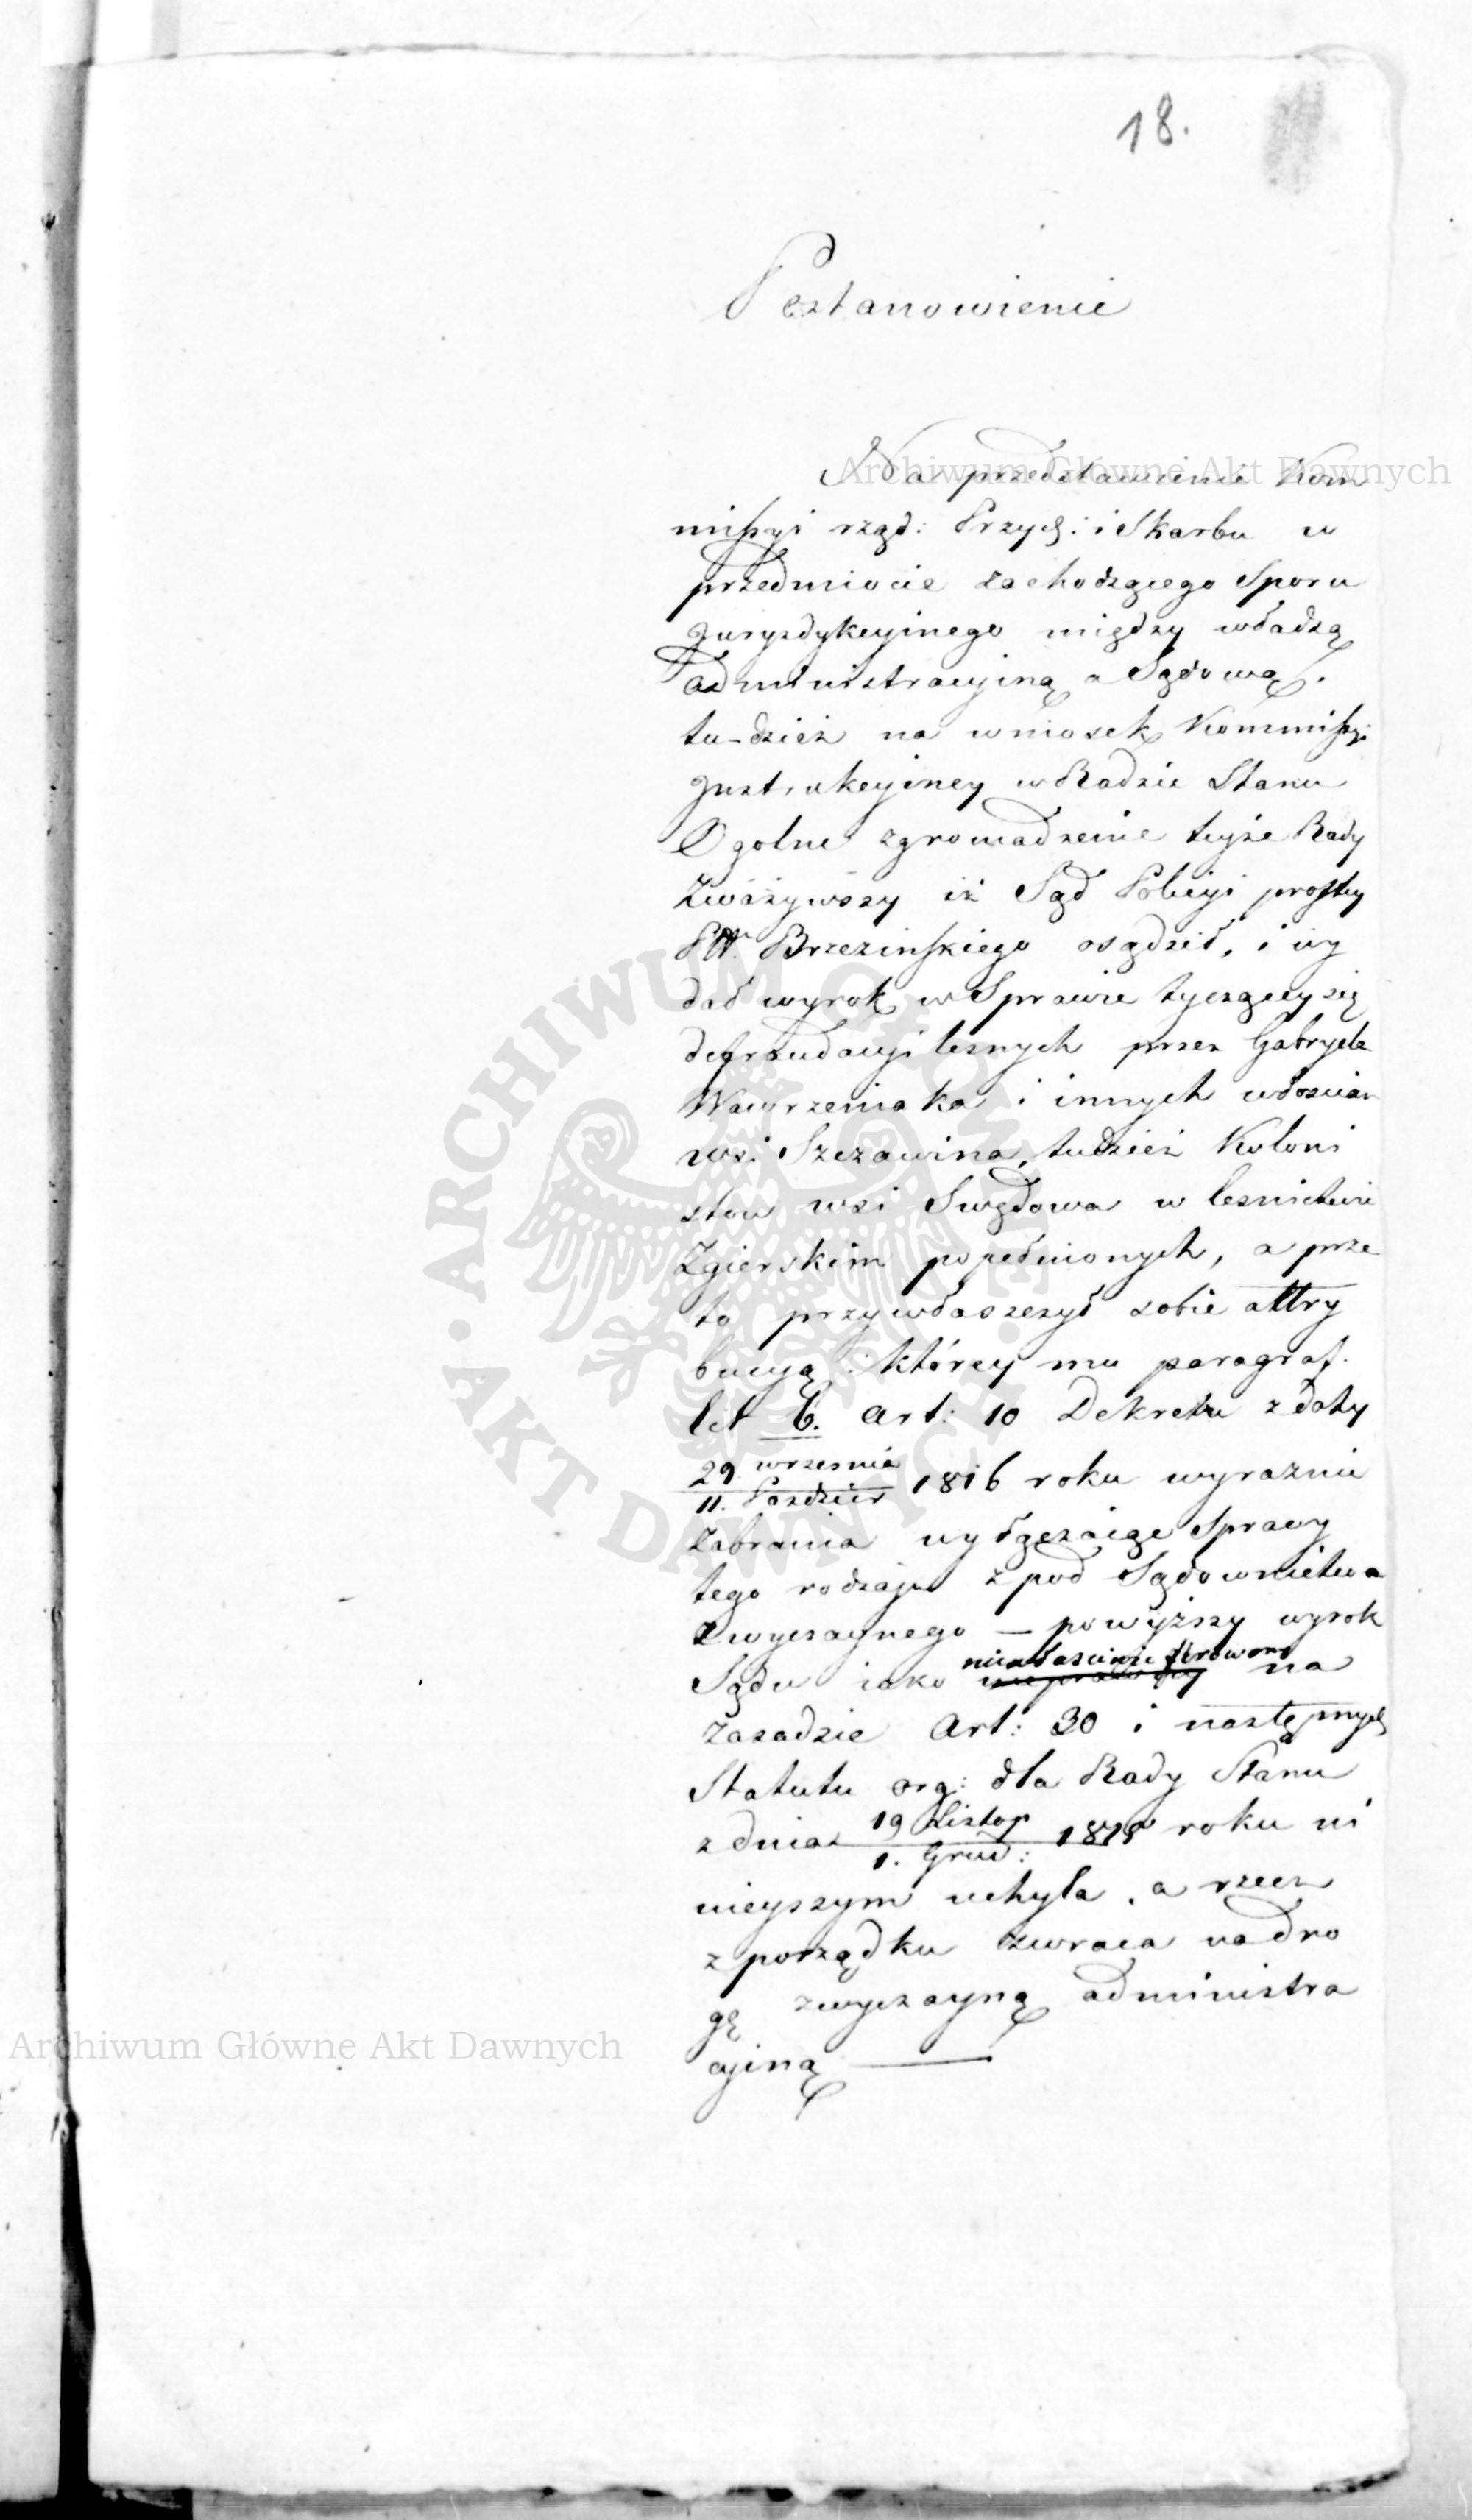 18.
Postanowienie
Na przedstawienie Kom
missyi rząd: Przych: i Skarbu w
przedmiocie zachodzącego Sporu
Jurysdykcyinego między władzą
administracyiną a Sądową.
tu-dzież na wniosek Kommissyi
Instrukcyiney w Radzie Stanu
Ogolne zgromadzenie teyże Rady
Zważywszy iż Sąd Policyi prostey
Brzezinskiego osądził, i wy
dał wyrok w Sprawie tyczącey się
defraudacyi lesnych przez Gabryela
Wawrzeniaka i innych włoscian
wsi Szczawina, tudzież Koloni
stow wsi Swędowa w lesnictwie
Zgierskim popełnionych, a prze
to przywłaszczył sobie attry
bucyą którey mu paragraf.
lit b. Art: 10 Dekretu z daty
29 wrzesnia
11. Pazdzier 1816 roku wyraznie
Zabrania wyłączaiąc Sprawy
tego rodzaju z pod Sądownictwa
Zwyczaynego — powyższy wyrok
niewłasciwie ferowany
Sądu iako na
zasadzie Art: 30 i następnych
Statutu org: dla Rady Stanu
19 Listop
z dnia 1815 roku ni
1. Grud:
nieyszym uchyla, a rzecz
z porządku zwraca na dro
gę zwyczayną administra
cyiną —
Archiwum Główne Akt Dawnych
Archiwum Główne Akt Dawnych
ARCHIWUM GŁÓWNE AKT DAWNYCH